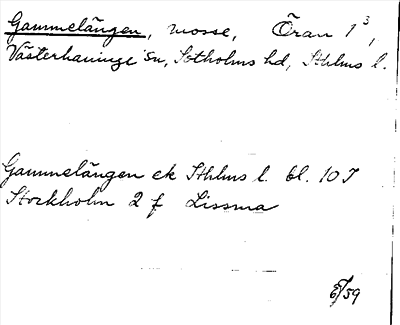 Gammelängen, mosse, Öran 1³,
Västerhaninge sn, Sotholms hd, Sthlms l.
Gammelängen ek Sthlms l. bl. 10 I
Stockholm 2 f Lissma
/59